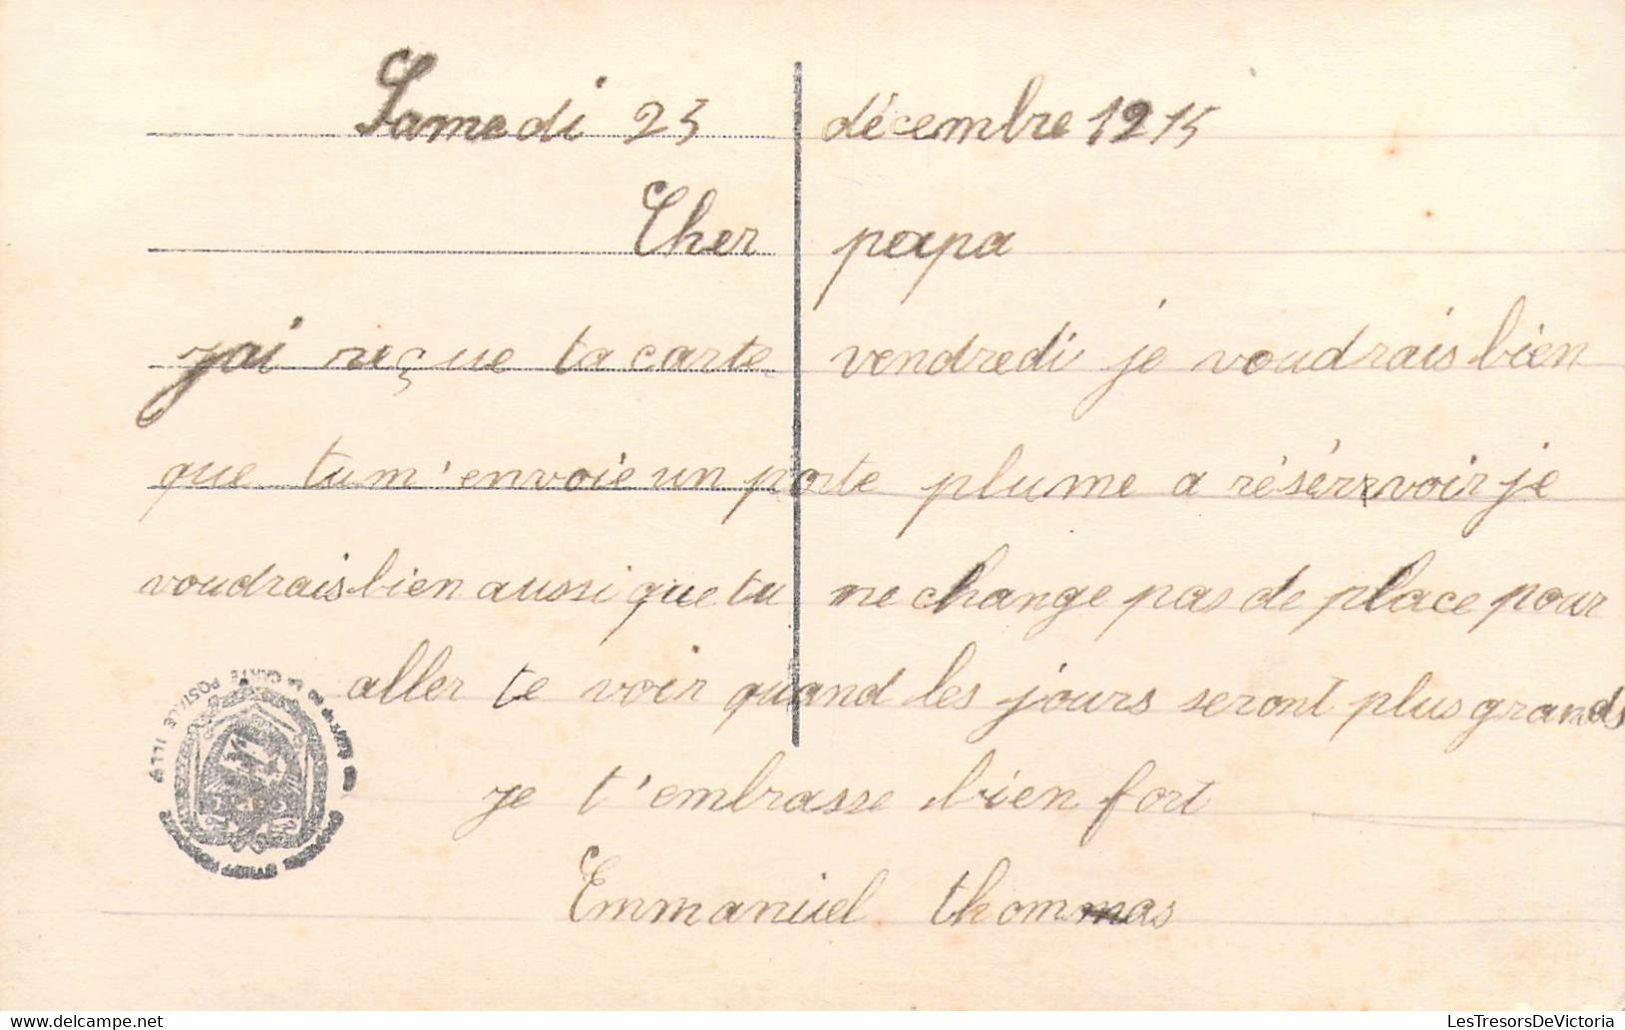 Samedi 25 décembre 1915
Cher papa
j'ai reçue ta carte vendredi je voudrais bien
que tu m'envoie un porte plume a réservoir je
voudrais bien aussi que tu ne change pas de place pour
aller te voir quand les jours seront plus grands
je t'embrasse bien fort
Emmanuel thommas
LA CARTE POSTALE
LesTresorsDeVictoria